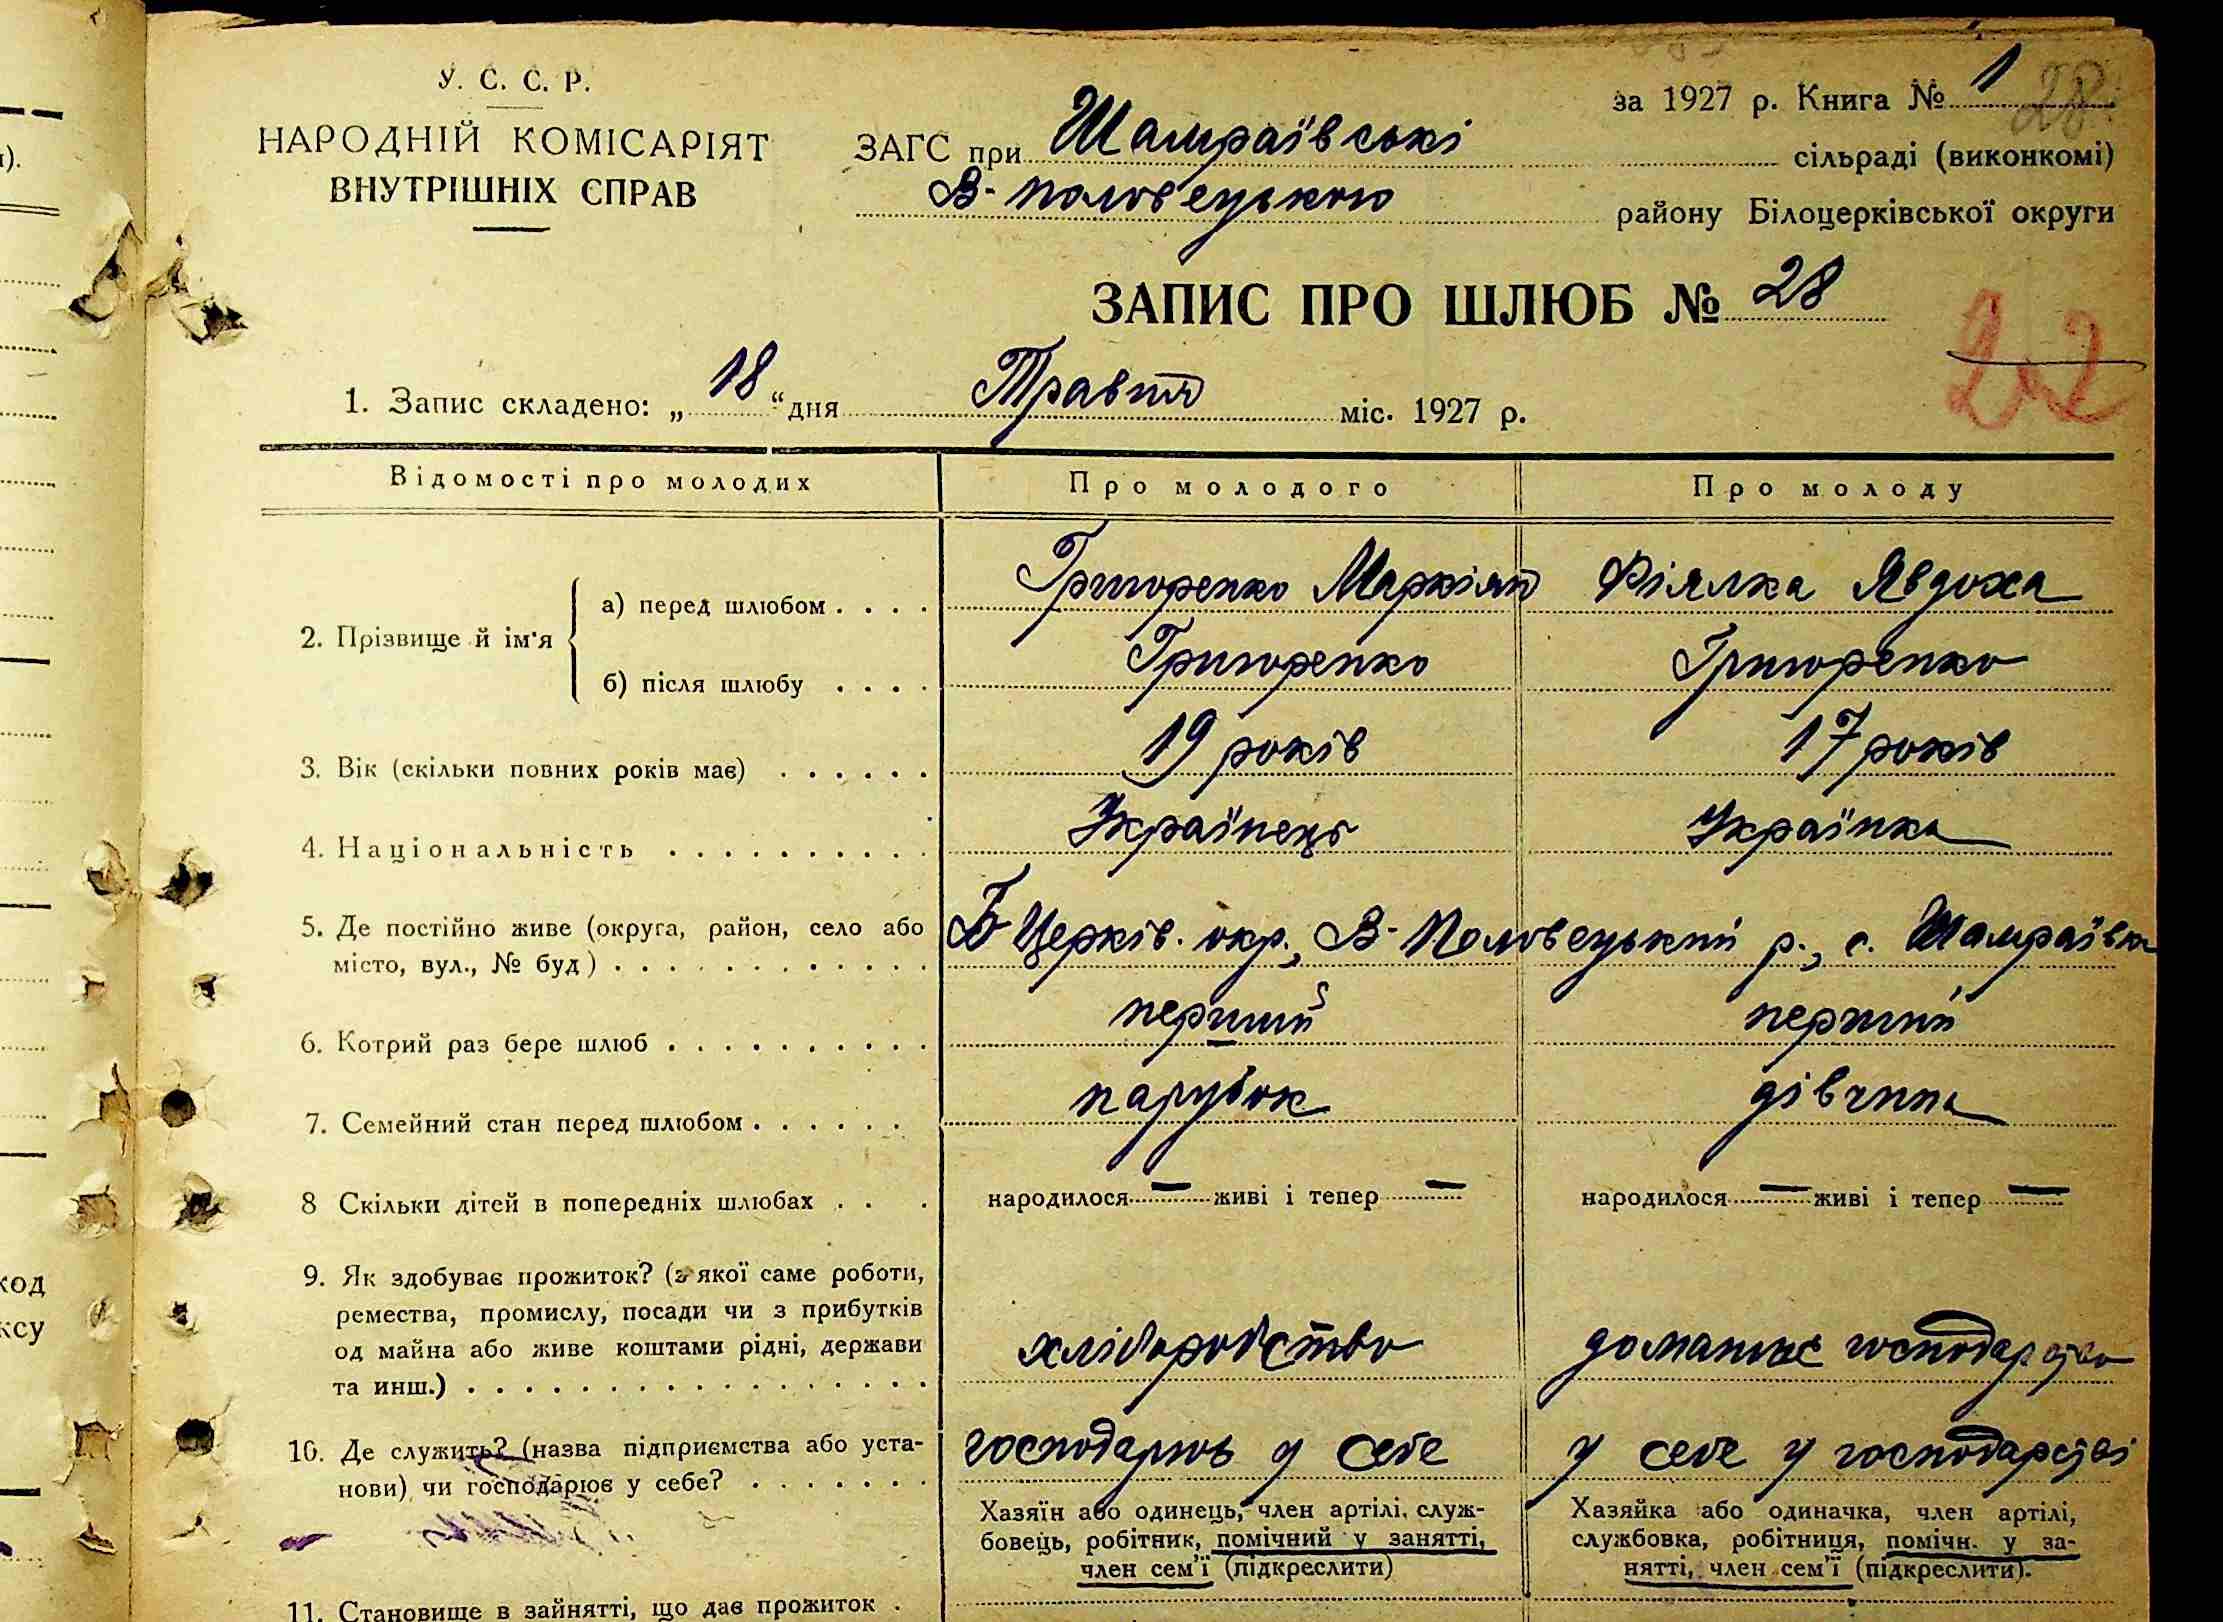 У. С. С. Р.
НАРОДНІЙ КОМІСАРІЯТ
ВНУТРІШНІХ СПРАВ
за 1927 р. Книга № 1
28
ЗАГС при Шамраївські сільраді (виконкомі)
В-Половецького району Білоцерківської округи
ЗАПИС ПРО ШЛЮБ № 28
202
1. Запис складено: „18“ дня Травня міс. 1927 р.
Відомості про молодих Про молодого Про молоду
2. Прізвище й ім'я
а) перед шлюбом . . . . Григоренко Маркіян Фіялка Явдоха
б) після шлюбу . . . . Григоренко Григоренко
3. Вік (скільки повних років має) . . . . . . 19 років 17 років
4. Національність . . . . . . . . . . Українець Українка
5. Де постійно живе (округа, район, село або
місто, вул., № буд) . . . . . . . . . . . . Б Церків. окр., В-Половецький р., с. Шамраївка
6. Котрий раз бере шлюб . . . . . . . . . . перший перший
7. Семейний стан перед шлюбом . . . . . . парубок дівчина
8 Скільки дітей в попередніх шлюбах . . . народилося — живі і тепер — народилося — живі і тепер —
9. Як здобуває прожиток? (з якої саме роботи,
ремества, промислу, посади чи з прибутків
од майна або живе коштами рідні, держави
та инш.) . . . . . . . . . . . . . . . . . хліборобство домашнє господарство
10. Де служить? (назва підприємства або уста-
нови) чи господарює у себе? . . . . . . . господарює у себе у себе у господарстві
Хазяїн або одинець, член артілі, служ-
бовець, робітник, помічний у занятті,
член сем'ї (підкреслити)
Хазяйка або одиначка, член артілі,
службовка, робітниця, помічн. у за-
нятті, член сем'ї (підкреслити).
11. Становище в зайнятті, що дає прожиток .
ход
ксу